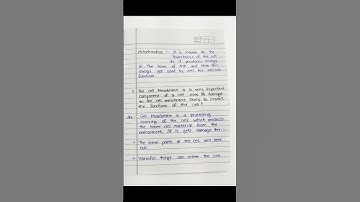 Mitochondria : It is known as the
Powerhouse of the cell.
As it produces energy
in the form of ATP and then this
energy get used by cell for various
functions.
The cell Membrane is a very important
component of a cell. How is damage
to the cell membrane likely to impact
the functions of the cell?
Ans Cell Membrane is a protecting
covering of the cell which protects
the inner cell material from the
environment. So if it gets damage then :
The inner parts of the cell will leak
out.
Harmful things can enter the cell.